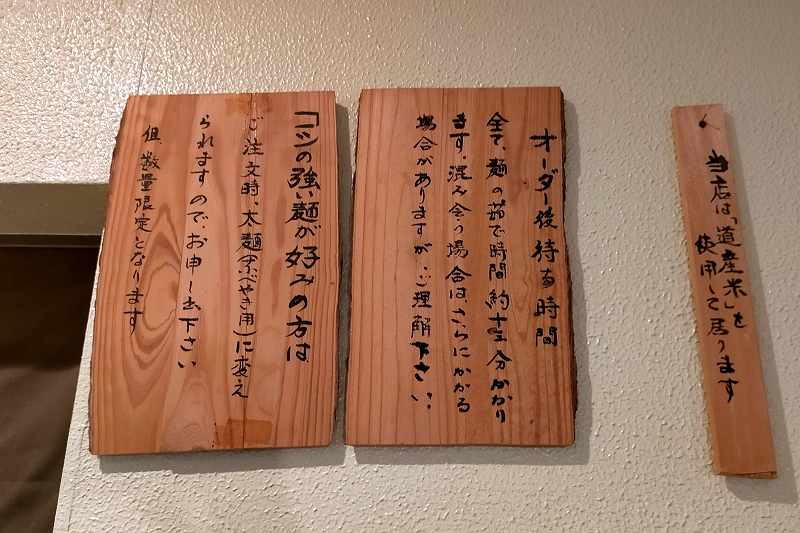 当店は「道産米」を
使用して居ります
オーダー後待る時間
全て、麺の茹で時間約十五分かかり
ます。混み合う場合は、さらにかかる
場合がありますが、ご理解下さい。
コシの強い麺が好みの方は
ご注文時、太麺(なべやき用)に変え
られますので、お申し出下さい
但、数量限定となります